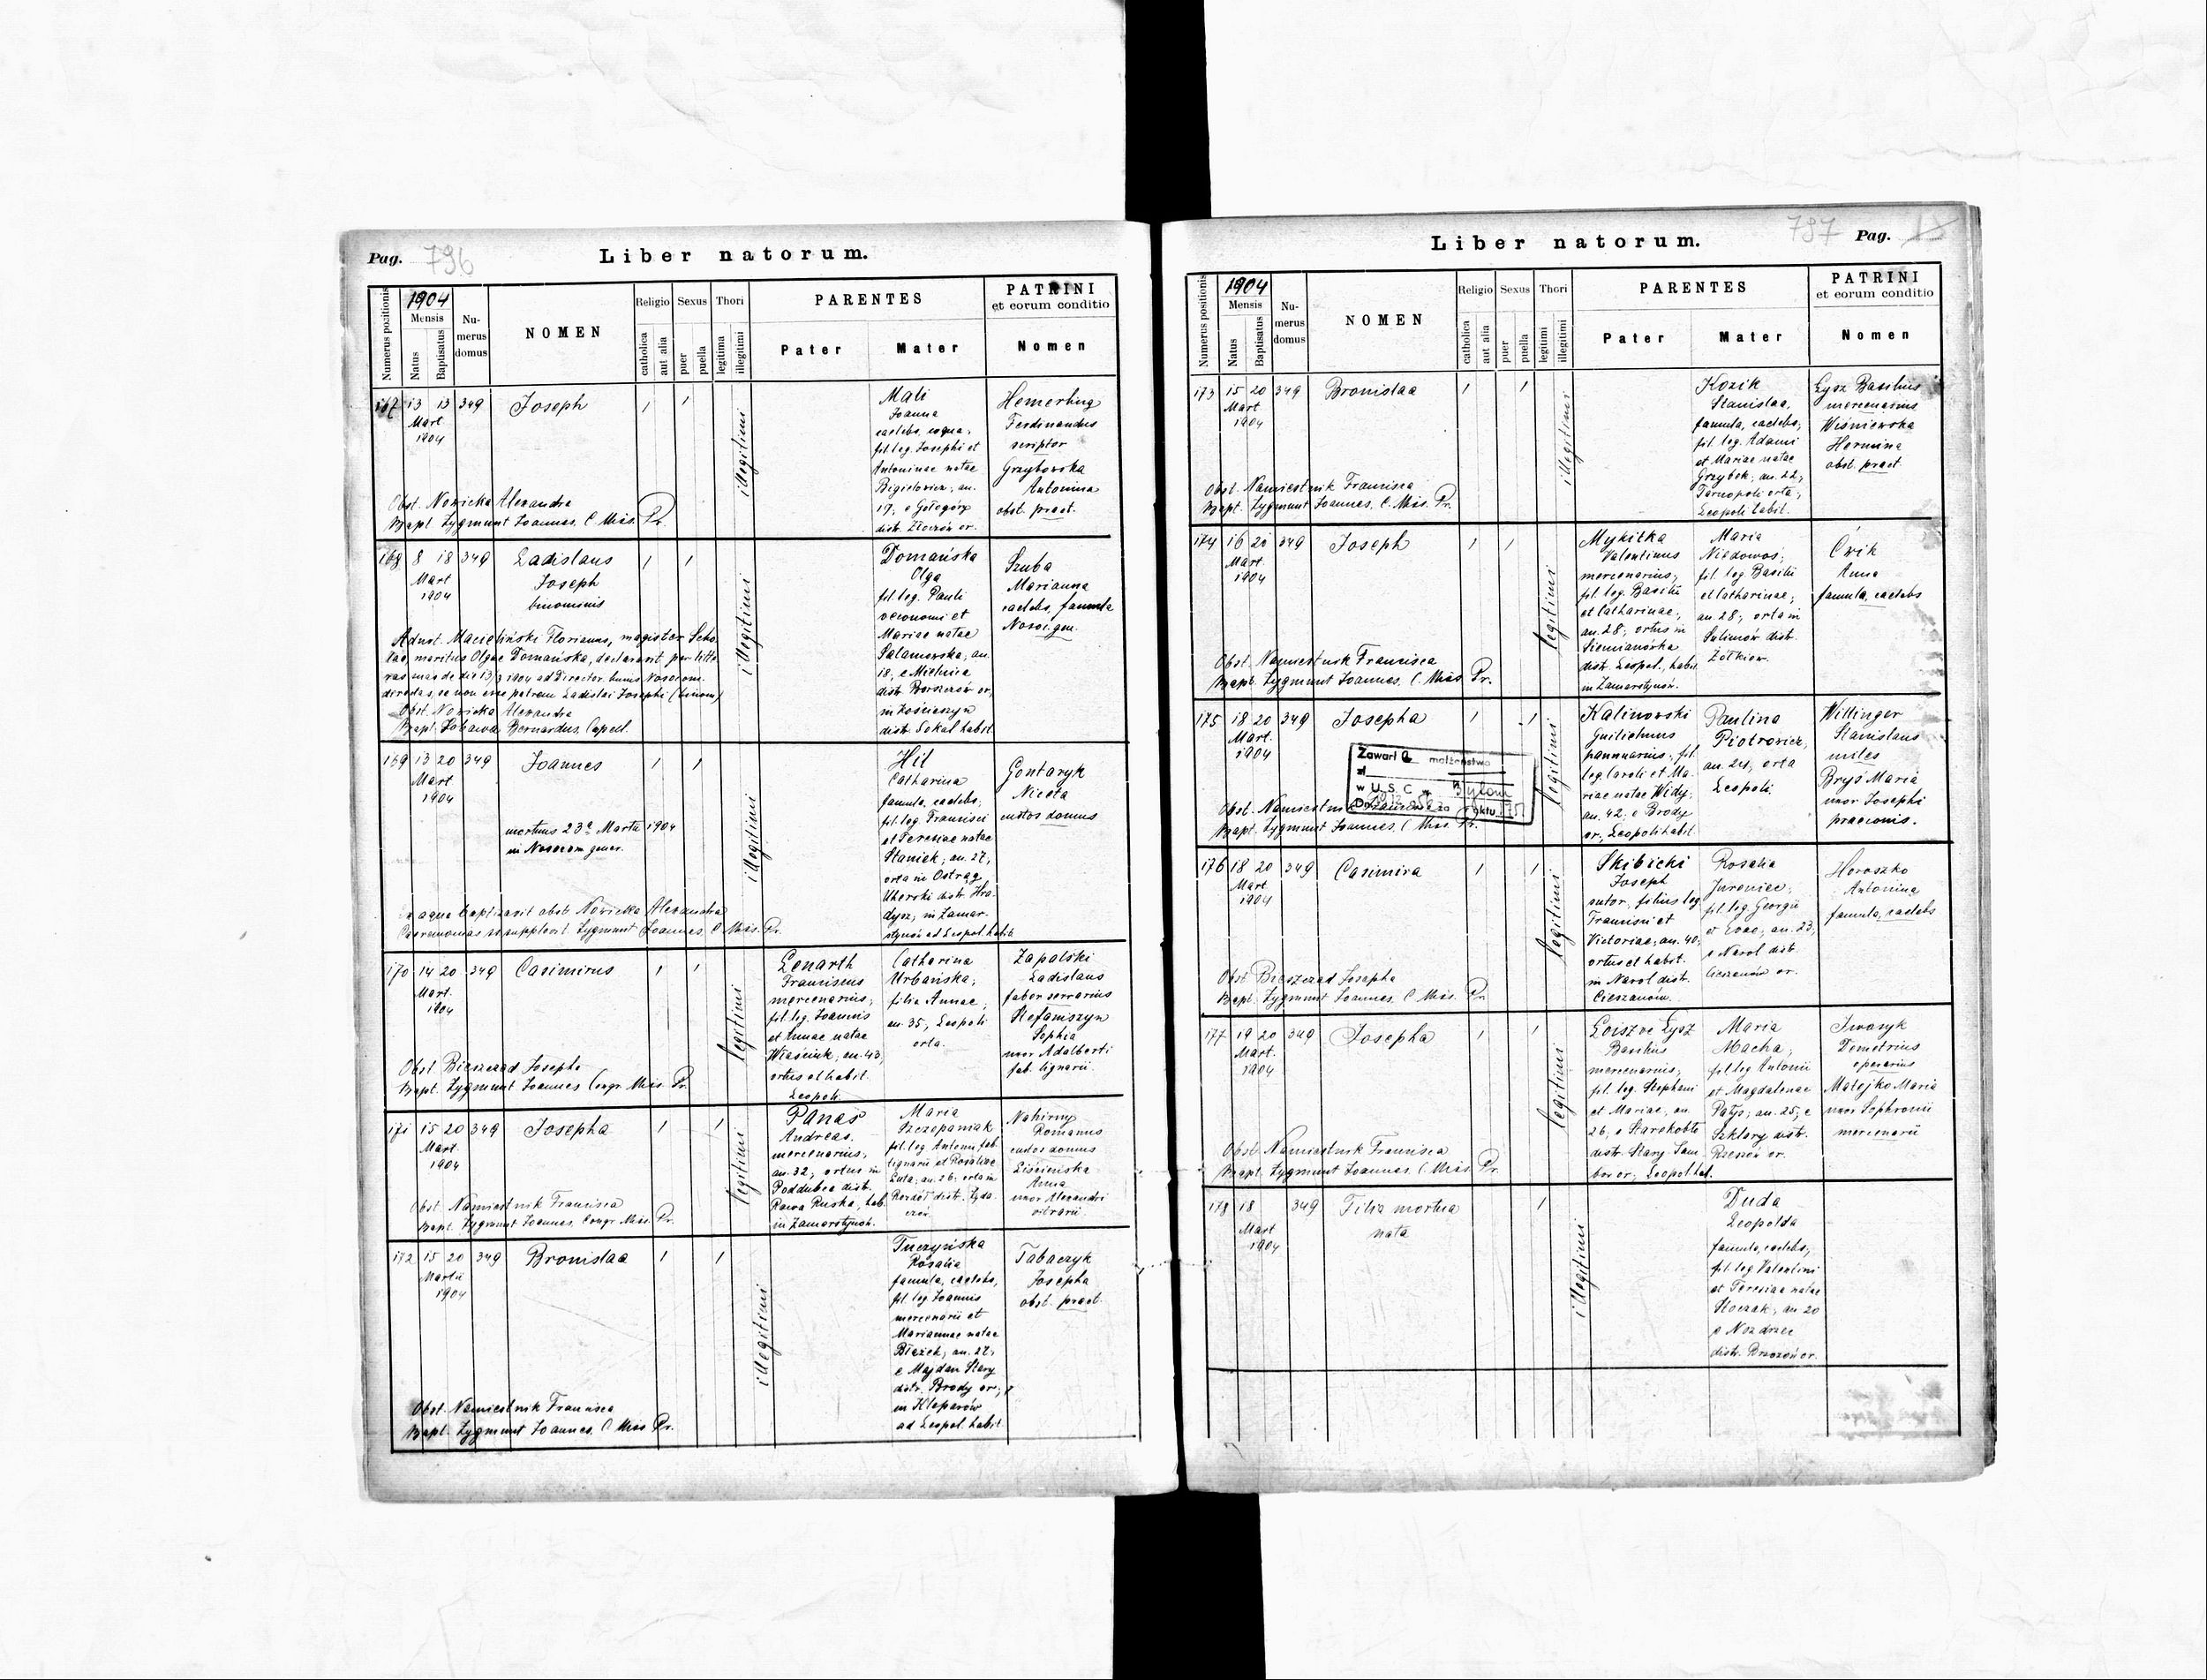 Pag. 796
Liber natorum.
Numerus positionis
1904
Mensis
Natus
Baptisatus
Nu-
merus
domus
NOMEN
Religio
catholica
aut alia
Sexus
puer
puella
Thori
legitima
illegitimi
PARENTES
Pater
Mater
PATRINI
et eorum conditio
Nomen
167 13 13 349 Joseph
Mart
1904
illegitimi
Mali
Joanna
caelebs, coqua,
fil. leg. Josephi et
Antoninae natae
an.
19, e Gołogóry
distr. Złoczów or.
Hemerling
Ferdinandus
scriptor
Grzybowska
Antonina
obst. pract.
Obst. Nowicka Alexandra
Bapt. Zygmunt Joannes, C. Miss. Pr.
168 8 18 349 Ladislaus
Mart
1904
Joseph
binominis
illegitimi
Domańska
Olga
fil. leg. Pauli
oeconomi et
Mariae natae
Salamowska, an.
18, e Mielnica
distr. Borszczów or.
in
distr. Sokal habit.
Szuba
Marianna
caelebs, famula
Nosoc. gen.
Adnot. Florianus, magister Scho
lae, maritus Olgae Domańska, declaravit per litte
ras suas de die 13/3 1904 ad Director. hujus Nosocom.
directas, se non esse patrem Ladislai Josephi (binom)
Obst. Nowicka Alexandra
Bapt. Bernardus, Capell.
169 13 20 349 Joannes
Mart
1904
illegitimi
Hil
Catharina
famula, caelebs,
fil. leg. Francisci
et Teresiae natae
Staniek, an. 27,
orta in Ostrąg
Uherski distr. Hra
dysz, in Zamar-
stynów ad Leopol. habit.
Gontaryk
Niceta
custos domus
mortuus 23a Martii 1904
in Nosocom gener.
Ex aqua baptizavit obst. Nowicka Alexandra
Caeremonias supplevit Zygmunt Joannes, C. Miss. Pr.
170 14 20 349 Casimirus
Mart.
1904
legitimi
Lenarth
Franciscus
mercenarius,
fil. leg. Joannis
et Annae natae
an. 43,
ortus et habit.
Leopoli.
Catharina
Urbańska,
filia Annae,
an. 35, Leopoli
orta.
Zapalski
Ladislaus
faber serrarius
Stefaniszyn
Sophia
uxor Adalberti
fab. lignarii.
Obst. Bieszczad Josepha
Bapt. Zygmunt Joannes Congr. Miss. Pr.
171 15 20 349 Josepha
Mart.
1904
legitimi
Panas
Andreas,
mercenarius,
an. 32, ortus in
Poddubce distr.
Rawa Ruska, hab.
in Zamarstynów.
Maria
Szczepaniak
fil. leg. Antonii, fab.
lignarii et Rosaliae
an. 26, orta in
Rozdół distr. Żyda-
czów.
Nahirny
Romanus
custos domus
Anna
uxor Alexandri
vitrarii
Obst. Namiestnik Francisca
Bapt. Zygmunt Joannes, Congr. Miss. Pr.
172 15 20 349 Bronislaa
Martii
1904
illegitimi
Tuczyńska
Rosalia
famula, caelebs,
fil. leg. Joannis
mercenarii et
Mariannae natae
an. 27,
e Majdan Stary
distr. Brody or.,
in Kleparów
ad Leopol. habit.
Tabaczyk
Josepha
obst. pract.
Obst. Namiestnik Francisca
Bapt. Zygmunt Joannes, C. Miss. Pr.
797 Pag.
Liber natorum.
Numerus positionis
1904
Mensis
Natus
Baptisatus
Nu-
merus
domus
NOMEN
Religio
catholica
aut alia
Sexus
puer
puella
Thori
legitimi
illegitimi
PARENTES
Pater
Mater
PATRINI
et eorum conditio
Nomen
173 15 20 349 Bronislaa
Mart
1904
illegitimi
Kozik
Stanislaa,
famula, caelebs,
fil. leg. Adami
et Mariae natae
Grzybek, an. 22,
Tarnopoli orta,
Leopoli habit.
Łysz Basilius
mercenarius
Wiśniewska
Hermina
obst. pract.
Obst. Namiestnik Francisca
Bapt. Zygmunt Joannes, C. Miss. Pr.
174 16 20 349 Joseph
Mart.
1904
legitimi
Mykitka
Valentinus
mercenarius,
fil. leg. Basilii
et Catharinae,
an. 28, ortus in
Siemianówka
distr. Leopol., habit.
in Zamarstynów.
Maria
Niedowos,
fil. leg. Basilii
et Catharinae,
an. 28, orta in
Sulimów distr.
Żółkiew.
Ćwik
Anna
famula, caelebs
Obst. Namiestnik Francisca
Bapt. Zygmunt Joannes, C. Miss. Pr.
175 18 20 349 Josepha
Mart.
1904
legitimi
Kalinowski
Guilielmus
pannuarius, fil.
leg. Caroli et Ma-
riae natae Widy,
an. 42, e Brody
or., Leopoli habit.
Paulina
Piotrowicz,
an. 24, orta
Leopoli.
Willinger
Stanislaus
miles
Bryś Maria
uxor Josephi
praeconis.
Zawarł a małżeństwo
w U. S. C. w Bytom
Obst. Namiestnik Francisca
Bapt. Zygmunt Joannes, C. Miss. Pr.
176 18 20 349 Casimira
Mart.
1904
legitimi
Skibicki
Joseph
sutor, filius leg.
Francisci et
Victoriae, an. 40,
ortus et habit.
in Narol distr.
Cieszanów.
Rosalia
Juroniec,
fil. leg. Georgii
et Evae, an. 23,
e Narol distr.
Cieszanów or.
Horoszko
Antonina
famula, caelebs
Obst. Bieszczad Josepha
Bapt. Zygmunt Joannes, C. Miss. Pr.
177 19 20 349 Josepha
Mart.
1904
legitimi
Łoisz ve Łysz
Basilius
mercenarius,
fil. leg. Stephani
et Mariae, an.
26, e
distr. Stary Sam
bor or., Leopol. hab.
Maria
Macha,
fil. leg. Antonii
et Magdalenae
an. 25, e
Szklary distr.
Rzeszów or.
Iwasyk
Demetrius
operarius
Matejko Maria
uxor Sophronii
mercenarii
Obst. Namiestnik Francisca
Bapt. Zygmunt Joannes, C. Miss. Pr.
178 18 349 Filia mortua
Mart
1904
nata
illegitimi
Duda
Leopolda
famula, caelebs,
fil. leg. Valentini
et Teresiae natae
an. 20
e Nozdrzec
distr. Brzozów or.